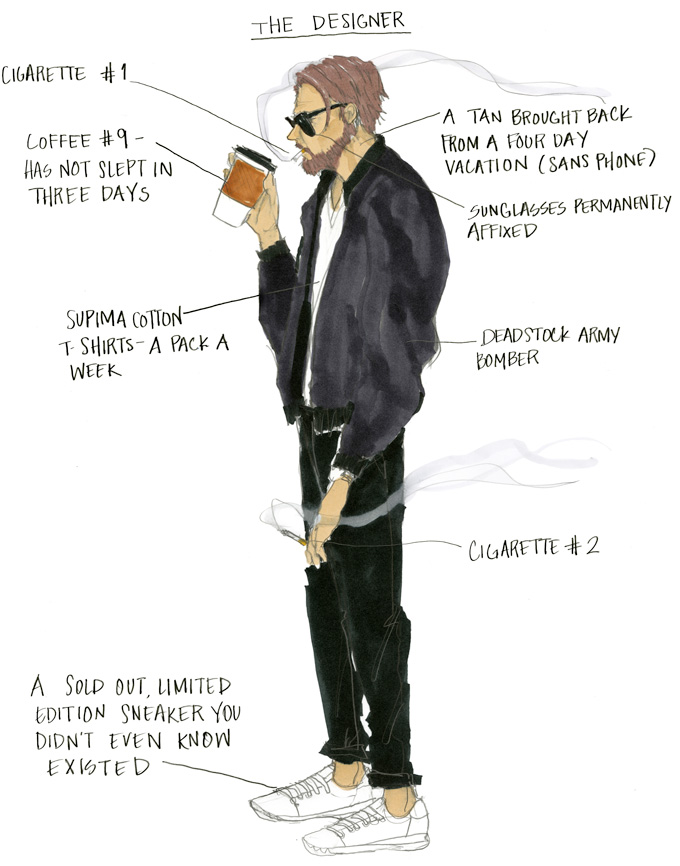 THE DESIGNER
CIGARETTE #1
COFFEE #9 -
HAS NOT SLEPT IN
THREE DAYS
A TAN BROUGHT BACK
FROM A FOUR DAY
VACATION (SANS PHONE)
SUNGLASSES PERMANENTLY
AFFIXED
SUPIMA COTTON
T-SHIRTS - A PACK A
WEEK
DEADSTOCK ARMY
BOMBER
CIGARETTE #2
A SOLD OUT, LIMITED
EDITION SNEAKER YOU
DIDN'T EVEN KNOW
EXISTED